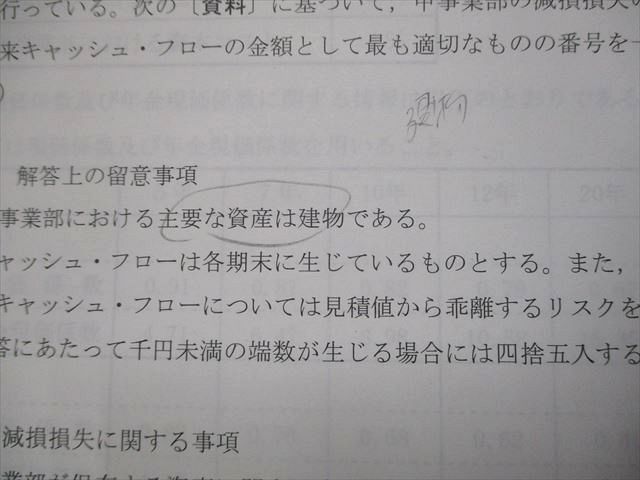 行っている。次の〔資料〕に基づいて、甲事業部の減損損失の
来キャッシュ・フローの金額として最も適切なものの番号を一
)
解答上の留意事項
事業部における主要な資産は建物である。
ャッシュ・フローは各期末に生じているものとする。また，
キャッシュ・フローについては見積値から乖離するリスクを
答にあたって千円未満の端数が生じる場合には四捨五入する
減損損失に関する事項